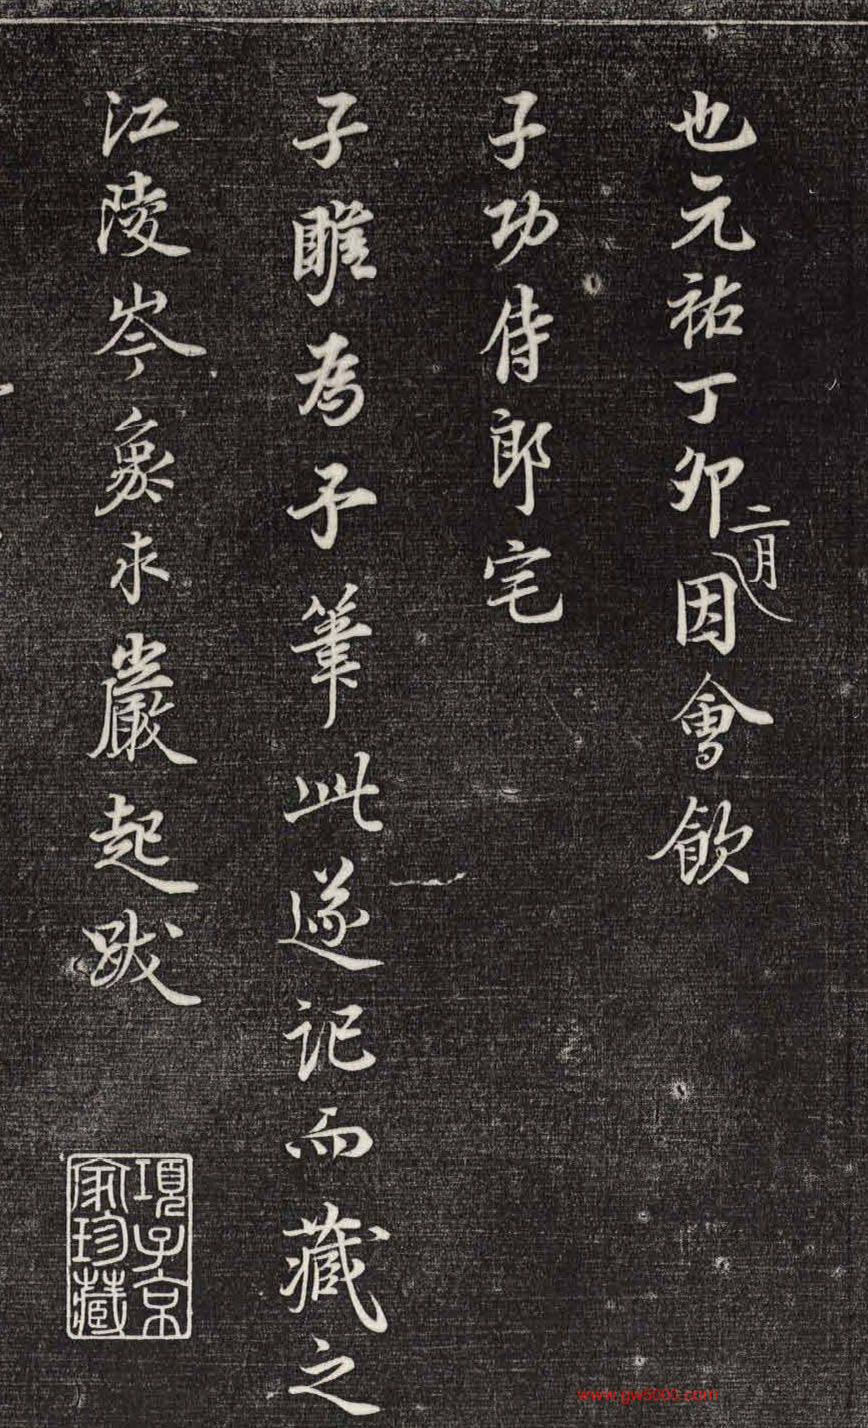 也元祐丁卯二月因會飲
子功侍郎宅
子睢為予筆此遂記而藏之
江陵岑象求巖起跋
項子京
家珍藏
www.gw5000.com